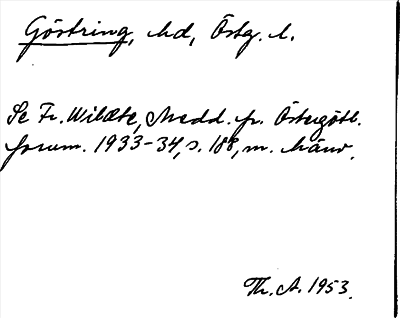 Göstring, hd, Östg. l.
Se Fr. Wilæte, Medd. fr. Östergötl.
fornm. 1933-34, s. 188, m. hänv.
Th. A. 1953.